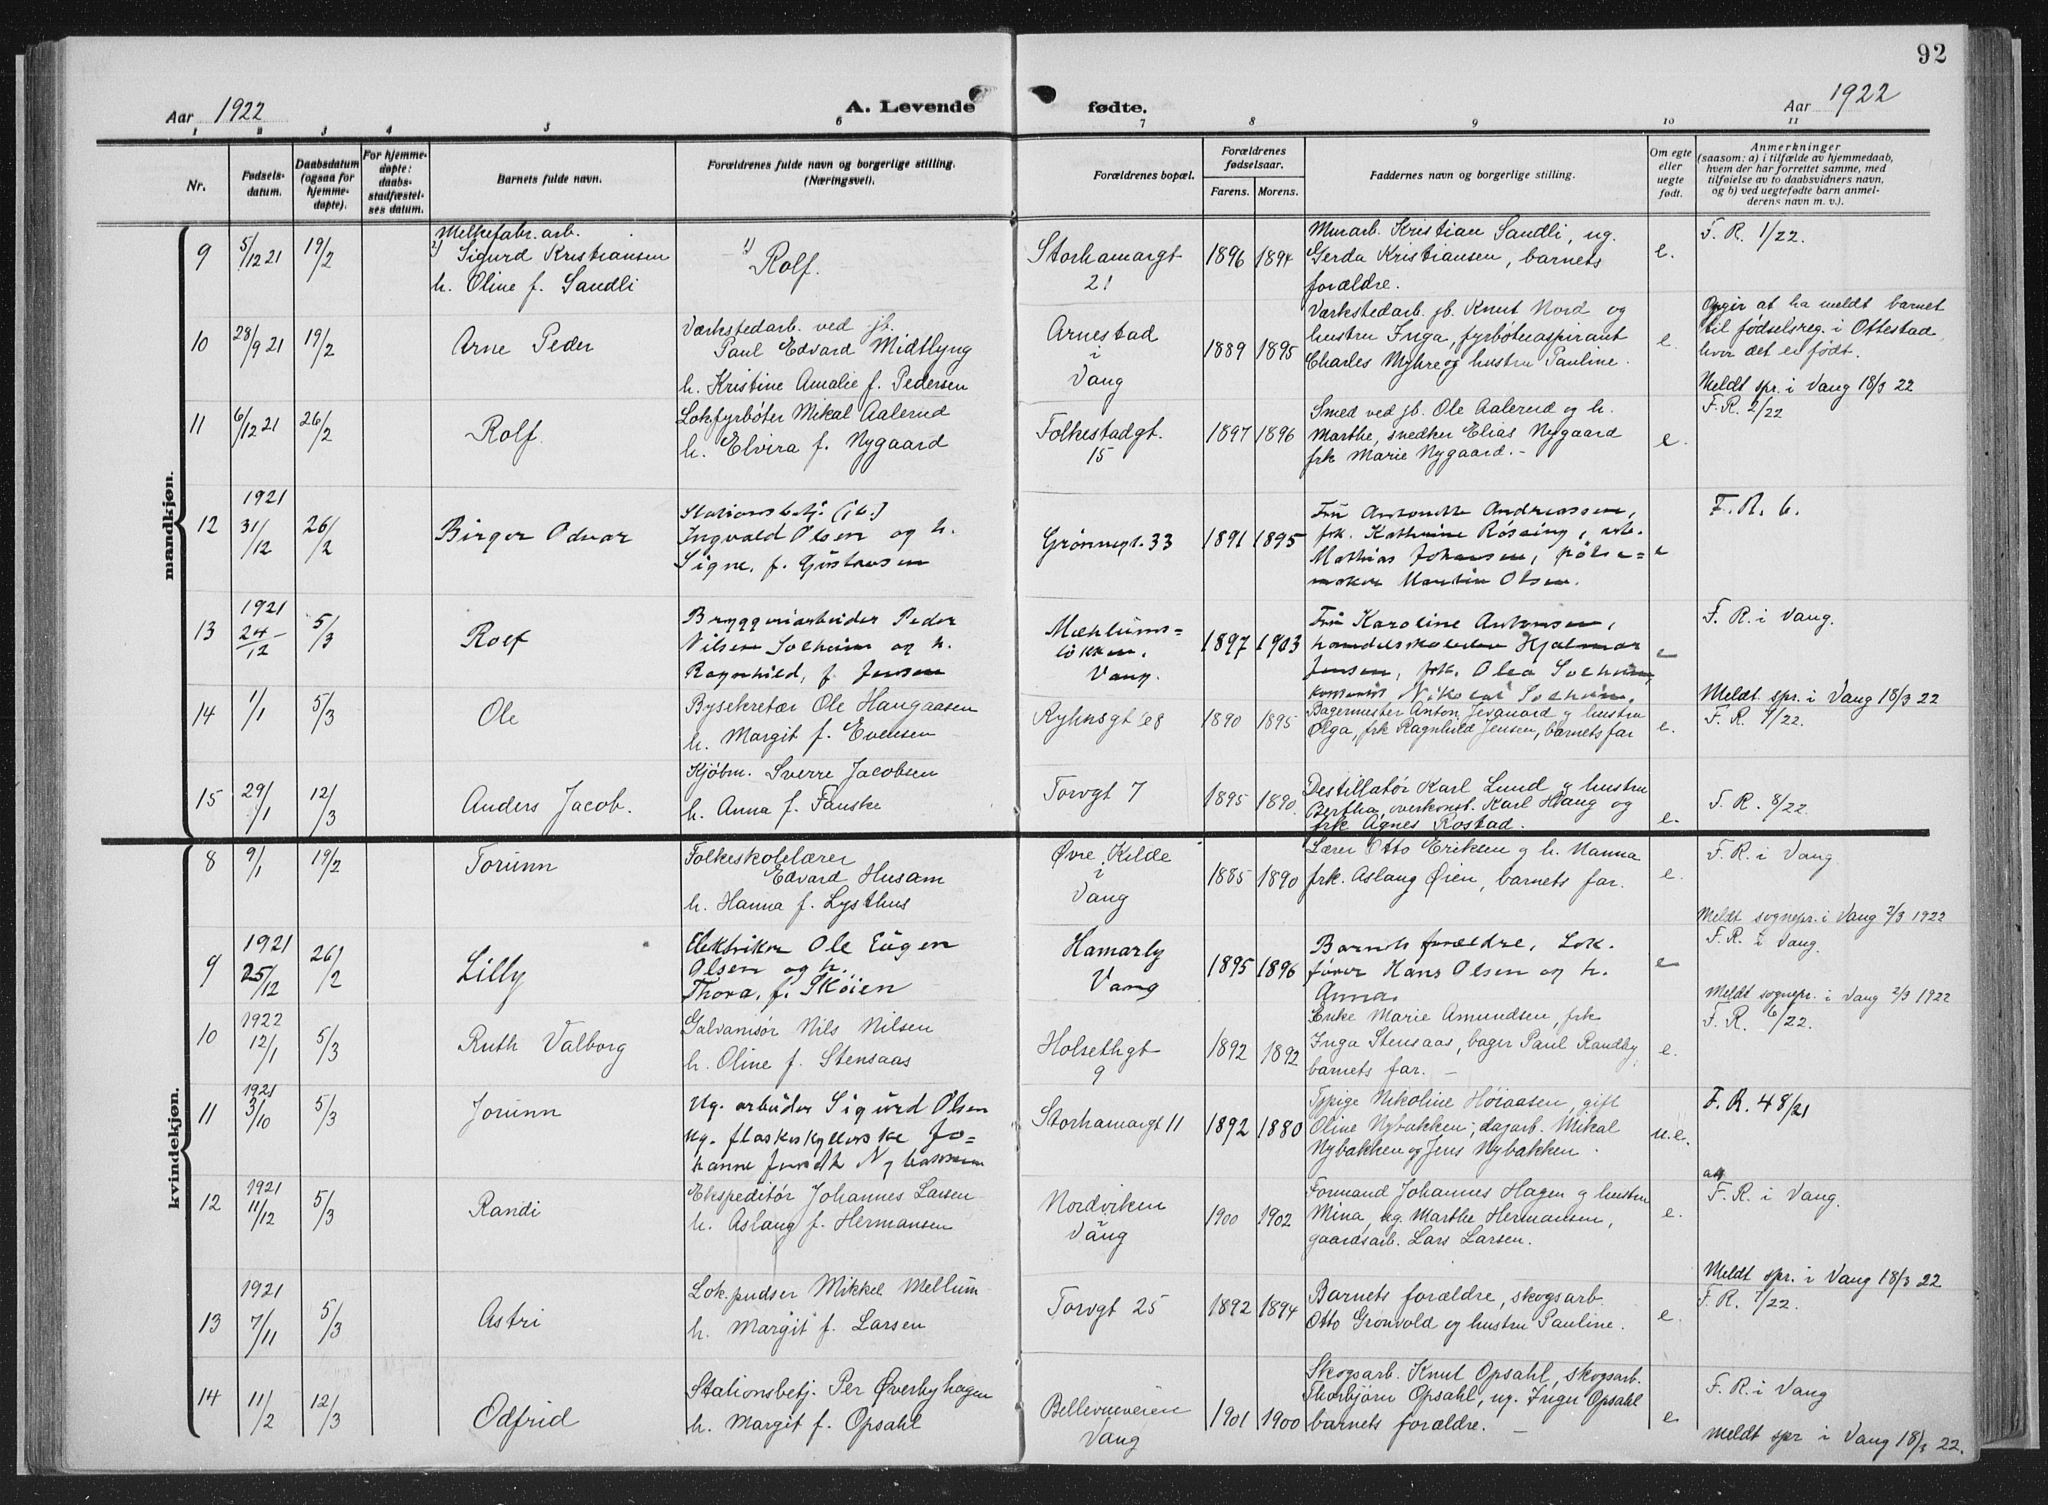 92
Aar 1922
A. Levende fødte.
Aar 1922
1 2 3 4 5 6 7 8 9 10 11
Nr.
Fødsels-
datum.
Daabsdatum
(ogsaa for
hjemme-
døpte).
For hjemme-
døpte:
daabs-
stadfæstel-
ses datum.
Barnets fulde navn.
Forældrenes fulde navn og borgerlige stilling.
(Næringsvei).
Forældrenes bopæl.
Forældrenes
fødselsaar.
Farens. Morens.
Faddernes navn og borgerlige stilling.
Om egte
eller
uegte
født.
Anmerkninger
(saasom: a) i tilfælde av hjemmedaab,
hvem der har forrettet samme, med
tilføielse av to daabsvidners navn,
og b) ved uegtefødte barn anmel-
derens navn m. v.).
mandkjøn.
9 5/12 21 19/2
Melkefabr. arb.
2) Sigurd Kristiansen
h. Oline f. Sandli
1) Rolf.
Storhamargt
21
1896 1894
Murarb. Kristian Sandli, ug.
Gerda Kristiansen, barnets
forældre.
e.
F. R. 1/22.
10 28/9 21 19/2
Arne Peder
Værkstedarb. ved jb.
Paul Edvard Midtlyng
h. Kristine Amalie f. Pedersen
Arnestad
i
Vang
1889 1895
Værkstedarb. jb. Knut Nord og
hustru Inga, fyrbøteraspirant
Charles Myhre og hustru Pauline.
e.
Opgir at ha meldt barnet
til fødselsreg. i Ottestad,
hvor det er født.
Meldt spr. i Vang 18/3 22
11 6/12 21 26/2
Rolf
Lok.fyrbøter Mikal Aalerud
h. Elvira f. Nygaard
Folkestadgt.
15
1897 1896
Smed ved jb. Ole Aalerud og h.
Marthe, snedker Elias Nygaard
frk Marie Nygaard. -
e.
F. R. 2/22
12 1921 31/12 26/2
Birger Odvar
Stationsbetj. (jb.)
Ingvald Olsen og h.
Signe, f. Gustavsen
Grønnegt. 33
1891 1895
Fru Antonette Andreassen,
frk. Kathrine Røssing, arb.
Mathias Johansen, pølse-
maker Martin Olsen.
e
F. R. 6.
13 1921 24/12 5/3
Rolf
Bryggeriarbeider Peder
Nilsen Solheim og h.
Ragnhild, f. Jensen
Mæhlums-
løkken.
Vang.
1897 1903
Fru Karoline Antonsen,
Hjalmar
Jensen, frk. Olea Solheim,
Nikolai Solheim.
e
F. R. i Vang.
Meldt spr. i Vang 18/3 22
14 1/1 5/3
Ole
Bysekretær Ole Haugaasen
h. Margit f. Evensen
Ryhnsgt 68
1890 1895
Bagermester Anton Jevanord og hustru
Olga, frk Ragnhild Jensen, barnets far
e.
F. R. 4/22.
15 29/1 12/3
Anders Jacob.
Kjøbm. Sverre Jacobsen
h. Anna f. Fauske
Torvgt 7
1895 1890.
Destillatør Karl Lund og hustru
Bertha, overkonst. Karl Haug og
frk Agnes Rostad.
e.
F. R. 8/22.
kvindekjøn.
8 9/1 19/2
Torunn
Folkeskolelærer
Edvard Husam
h. Hanna f. Lysthus
Øvre Kilde
i
Vang
1885 1890
Lærer Otto Eriksen og h. Nanna
frk. Aslaug Øien, barnets far.
e.
F. R. i Vang.
Meldt sognepr. i Vang 2/3 1922
9 1921 25/12 26/2
Lilly
Elektriker Ole Eugen
Olsen og h.
Thora, f. Skøien
Hamarby
Vang
1895 1896
Barnets forældre, Lok.
fører Hans Olsen og h.
Anna.
e
F. R. i Vang.
Meldt sognepr. i Vang 2/3 1922
10 1922 12/1 5/3
Ruth Valborg
Galvanisør Nils Nilsen
h. Oline f. Stensaas
Holsethgt
9
1892 1892
Enke Marie Amundsen, frk
Inga Stensaas, bager Paul Randby,
barnets far. -
e.
F. R. 6/22.
11 1921 3/10 5/3
Jorunn
Ug. arbeider Sigurd Olsen
Ug. flaskeskyllerske Jo-
hanne Nybakken
Storhamargt 11
1892 1880
Tjpige Nikoline Høiaasen, gift
Oline Nybakken, dagarb. Mikal
Nybakken og Jens Nybakken.
u.e.
F. R. 48/21
12 1921 11/12 5/3
Randi
Ekspeditør Johannes Larsen
h. Aslaug f. Hermansen
Nordviken
Vang
1900 1902
Formand Johannes Hagen og hustru
Mina, ug. Marthe Hermansen,
gaardsarb. Lars Larsen.
e.
F. R. i Vang.
Meldt spr. i Vang 18/3 22
13 1921 7/11 5/3
Astri
Lok.pudser Mikkel Mellum
h. Margit f. Larsen
Torvgt 25
1892 1894
Barnets forældre, skogsarb.
Otto Grønvold og hustru Pauline.
e.
F. R. 7/22.
14 11/2 12/3
Odfrid
Stationsbetj. Per Øverbyhagen
h. Margit f. Opsahl
Bellevueveien
Vang
1901 1900
Skogsarb. Knut Opsahl, skogsarb.
Thorbjørn Opsahl, ug. Inger Opsahl
barnets forældre. -
e
F. R. i Vang
Meldt spr i Vang 18/3 22.